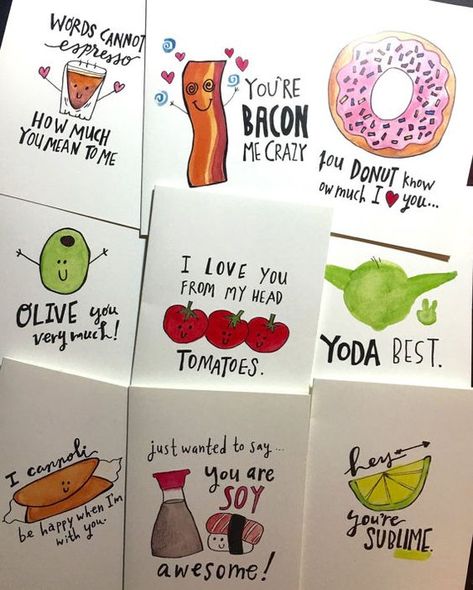 WORDS CANNOT
espresso
HOW MUCH
YOU MEAN TO ME
YOU'RE
BACON
ME CRAZY
you DONUT know
ow much I ♥ you...
OLIVE you
very much!
I LOVE YOU
FROM MY HEAD
TOMATOES.
YODA BEST.
I cannoli
be happy when I'm
with you.
just wanted to say...
you are
SOY
awesome!
hey
you're
SUBLIME.